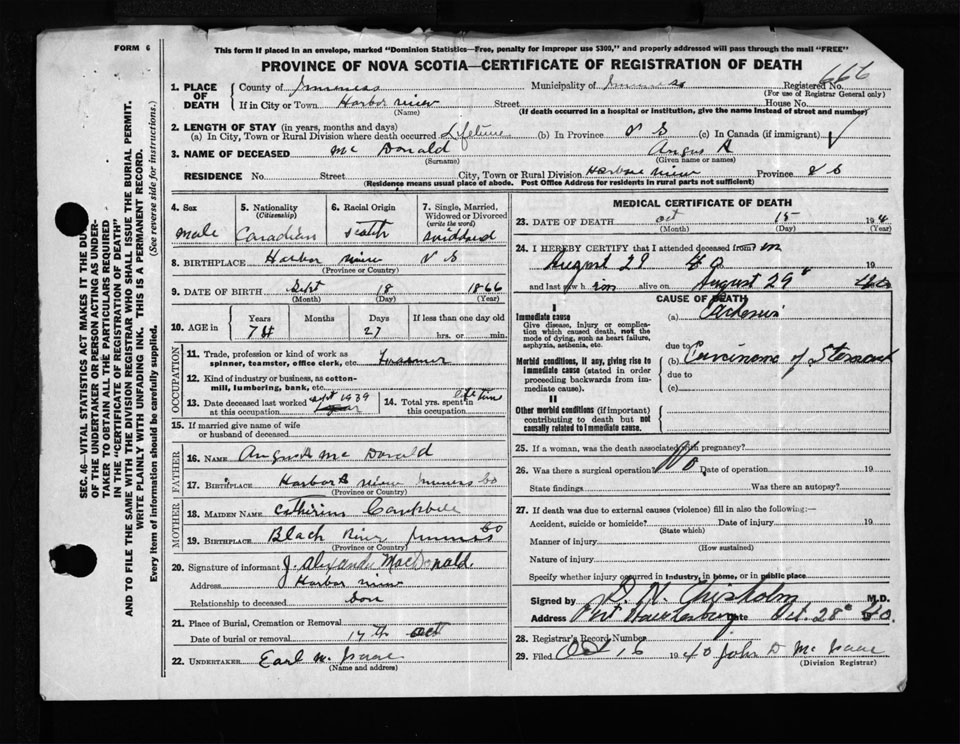 FORM 6
This form if placed in an envelope, marked "Dominion Statistics—Free, penalty for improper use $300," and properly addressed will pass through the mail "FREE"
PROVINCE OF NOVA SCOTIA—CERTIFICATE OF REGISTRATION OF DEATH
SEC. 46—VITAL STATISTICS ACT MAKES IT THE DU
OF THE UNDERTAKER OR PERSON ACTING AS UNDER-
TAKER TO OBTAIN ALL THE PARTICULARS REQUIRED
IN THE "CERTIFICATE OF REGISTRATION OF DEATH"
AND TO FILE THE SAME WITH THE DIVISION REGISTRAR WHO SHALL ISSUE THE BURIAL PERMIT.
WRITE PLAINLY WITH UNFADING INK. THIS IS A PERMANENT RECORD.
Every item of information should be carefully supplied. (See reverse side for instructions.)
1. PLACE OF DEATH
County of Inverness Municipality of Registered No. 666
(For use of Registrar General only)
If in City or Town Harbor view Street House No.
(Name) (If death occurred in a hospital or institution, give the name instead of street and number)
2. LENGTH OF STAY (in years, months and days)
(a) In City, Town or Rural Division where death occurred Lifetime (b) In Province N S (c) In Canada (if immigrant)
3. NAME OF DECEASED Mc Donald Angus
(Surname) (Given name or names)
RESIDENCE No. Street City, Town or Rural Division Harbor view Province N S
(Residence means usual place of abode. Post Office Address for residents in rural parts not sufficient)
4. Sex 5. Nationality (Citizenship) 6. Racial Origin 7. Single, Married, Widowed or Divorced (write the word)
male Canadian
8. BIRTHPLACE Harbor view N S
(Province or Country)
9. DATE OF BIRTH Sept 18 1866
(Month) (Day) (Year)
10. AGE in Years Months Days If less than one day old
74 27 hrs. or min.
OCCUPATION
11. Trade, profession or kind of work as spinner, teamster, office clerk, etc.
12. Kind of industry or business, as cotton-mill, lumbering, bank, etc.
13. Date deceased last worked at this occupation Sept 1939
14. Total yrs. spent in this occupation life time
15. If married give name of wife or husband of deceased
FATHER
16. NAME Angus Mc Donald
17. BIRTHPLACE Harbor view Inverness Co
(Province or Country)
MOTHER
18. MAIDEN NAME Catherine Campbell
19. BIRTHPLACE Black River Inverness Co
(Province or Country)
20. Signature of informant J. Alexander MacDonald.
Address Harbor view
Relationship to deceased Son
21. Place of Burial, Cremation or Removal
Date of burial or removal 17th Oct
22. UNDERTAKER Earl Mc Isaac
(Name and address)
MEDICAL CERTIFICATE OF DEATH
23. DATE OF DEATH Oct 15 194
(Month) (Day) (Year)
24. I HEREBY CERTIFY that I attended deceased from
August 29 19
and last saw h im alive on August 29 40
CAUSE OF DEATH
I
Immediate cause
Give disease, injury or complication which caused death, not the mode of dying, such as heart failure, asphyxia, asthenia, etc.
(a) Cachexia
due to
Morbid conditions, if any, giving rise to immediate cause (stated in order proceeding backwards from immediate cause).
(b) Carcinoma of Stomach
due to
(c)
II
Other morbid conditions (if important) contributing to death but not causally related to immediate cause.
25. If a woman, was the death associated with pregnancy?
26. Was there a surgical operation? No Date of operation 19
State findings Was there an autopsy?
27. If death was due to external causes (violence) fill in also the following:—
Accident, suicide or homicide? Date of injury 19
(State which)
Manner of injury
(How sustained)
Nature of injury
Specify whether injury occurred in industry, in home, or in public place
Signed by Chisholm M.D.
Address Pt Hawkesbury Date Oct. 28 40.
28. Registrar's Record Number
29. Filed Oct 16 1940 John D Mc Isaac
(Division Registrar)